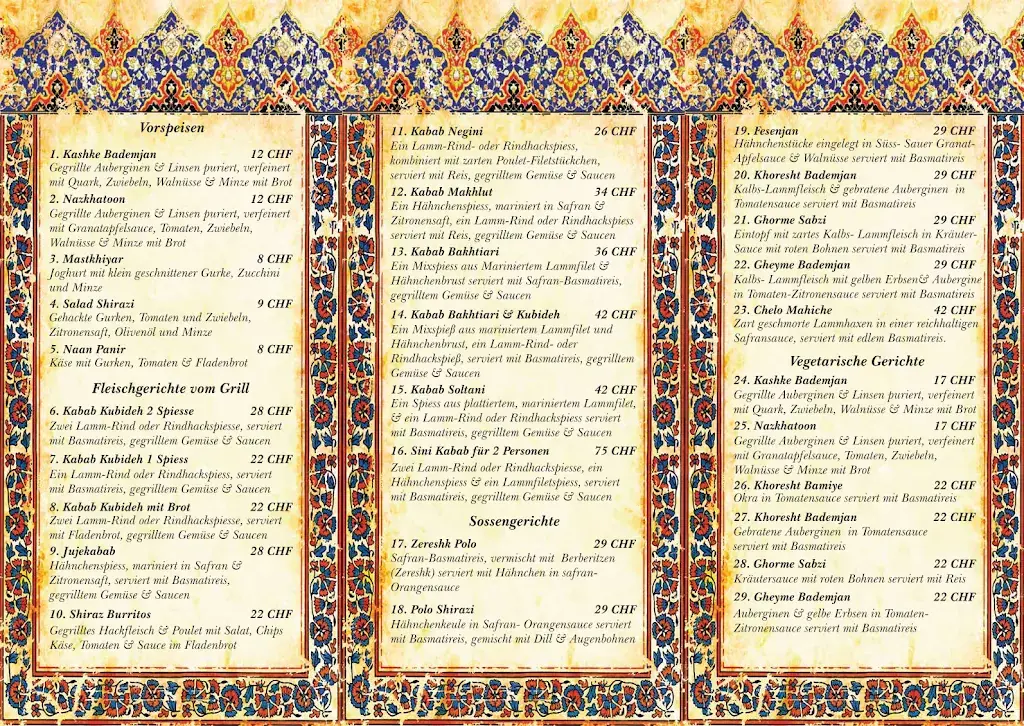 Vorspeisen
1. Kashke Bademjan 12 CHF
Gegrillte Auberginen & Linsen puriert, verfeinert
mit Quark, Zwiebeln, Walnüsse & Minze mit Brot
2. Nazkhatoon 12 CHF
Gegrillte Auberginen & Linsen puriert, verfeinert
mit Granatapfelsauce, Tomaten, Zwiebeln,
Walnüsse & Minze mit Brot
3. Mastkhiyar 8 CHF
Joghurt mit klein geschnittener Gurke, Zucchini
und Minze
4. Salad Shirazi 9 CHF
Gehackte Gurken, Tomaten und Zwiebeln,
Zitronensaft, Olivenöl und Minze
5. Naan Panir 8 CHF
Käse mit Gurken, Tomaten & Fladenbrot
Fleischgerichte vom Grill
6. Kabab Kubideh 2 Spiesse 28 CHF
Zwei Lamm-Rind oder Rindhackspiesse, serviert
mit Basmatireis, gegrilltem Gemüse & Saucen
7. Kabab Kubideh 1 Spiess 22 CHF
Ein Lamm-Rind oder Rindhackspiess, serviert
mit Basmatireis, gegrilltem Gemüse & Saucen
8. Kabab Kubideh mit Brot 22 CHF
Zwei Lamm-Rind oder Rindhackspiesse, serviert
mit Fladenbrot, gegrilltem Gemüse & Saucen
9. Jujekabab 28 CHF
Hähnchenspiess, mariniert in Safran &
Zitronensaft, serviert mit Basmatireis,
gegrilltem Gemüse & Saucen
10. Shiraz Burritos 22 CHF
Gegrilltes Hackfleisch & Poulet mit Salat, Chips
Käse, Tomaten & Sauce im Fladenbrot
11. Kabab Negini 26 CHF
Ein Lamm-Rind- oder Rindhackspiess,
kombiniert mit zarten Poulet-Filetstückchen,
serviert mit Reis, gegrilltem Gemüse & Saucen
12. Kabab Makhlut 34 CHF
Ein Hähnchenspiess, mariniert in Safran &
Zitronensaft, ein Lamm-Rind oder Rindhackspiess
serviert mit Reis, gegrilltem Gemüse & Saucen
13. Kabab Bakhtiari 36 CHF
Ein Mixspiess aus Mariniertem Lammfilet &
Hähnchenbrust serviert mit Safran-Basmatireis,
gegrilltem Gemüse & Saucen
14. Kabab Bakhtiari & Kubideh 42 CHF
Ein Mixspieß aus mariniertem Lammfilet und
Hähnchenbrust, ein Lamm-Rind- oder
Rindhackspieß, serviert mit Basmatireis, gegrilltem
Gemüse & Saucen
15. Kabab Soltani 42 CHF
Ein Spiess aus plattiertem, mariniertem Lammfilet,
& ein Lamm-Rind oder Rindhackspiess serviert
mit Basmatireis, gegrilltem Gemüse & Saucen
16. Sini Kabab für 2 Personen 75 CHF
Zwei Lamm-Rind oder Rindhackspiesse, ein
Hähnchenspiess & ein Lammfiletspiess, serviert
mit Basmatireis, gegrilltem Gemüse & Saucen
Sossengerichte
17. Zereshk Polo 29 CHF
Safran-Basmatireis, vermischt mit Berberitzen
(Zereshk) serviert mit Hähnchen in safran-
Orangensauce
18. Polo Shirazi 29 CHF
Hähnchenkeule in Safran- Orangensauce serviert
mit Basmatireis, gemischt mit Dill & Augenbohnen
19. Fesenjan 29 CHF
Hähnchenstücke eingelegt in Süss- Sauer Granat-
Apfelsauce & Walnüsse serviert mit Basmatireis
20. Khoresht Bademjan 29 CHF
Kalbs-Lammfleisch & gebratene Auberginen in
Tomatensauce serviert mit Basmatireis
21. Ghorme Sabzi 29 CHF
Eintopf mit zartes Kalbs- Lammfleisch in Kräuter-
Sauce mit roten Bohnen serviert mit Basmatireis
22. Gheyme Bademjan 29 CHF
Kalbs- Lammfleisch mit gelben Erbsen& Aubergine
in Tomaten-Zitronensauce serviert mit Basmatireis
23. Chelo Mahiche 42 CHF
Zart geschmorte Lammhaxen in einer reichhaltigen
Safransauce, serviert mit edlem Basmatireis.
Vegetarische Gerichte
24. Kashke Bademjan 17 CHF
Gegrillte Auberginen & Linsen puriert, verfeinert
mit Quark, Zwiebeln, Walnüsse & Minze mit Brot
25. Nazkhatoon 17 CHF
Gegrillte Auberginen & Linsen puriert, verfeinert
mit Granatapfelsauce, Tomaten, Zwiebeln,
Walnüsse & Minze mit Brot
26. Khoresht Bamiye 22 CHF
Okra in Tomatensauce serviert mit Basmatireis
27. Khoresht Bademjan 22 CHF
Gebratene Auberginen in Tomatensauce
serviert mit Basmatireis
28. Ghorme Sabzi 22 CHF
Kräutersauce mit roten Bohnen serviert mit Reis
29. Gheyme Bademjan 22 CHF
Auberginen & gelbe Erbsen in Tomaten-
Zitronensauce serviert mit Basmatireis